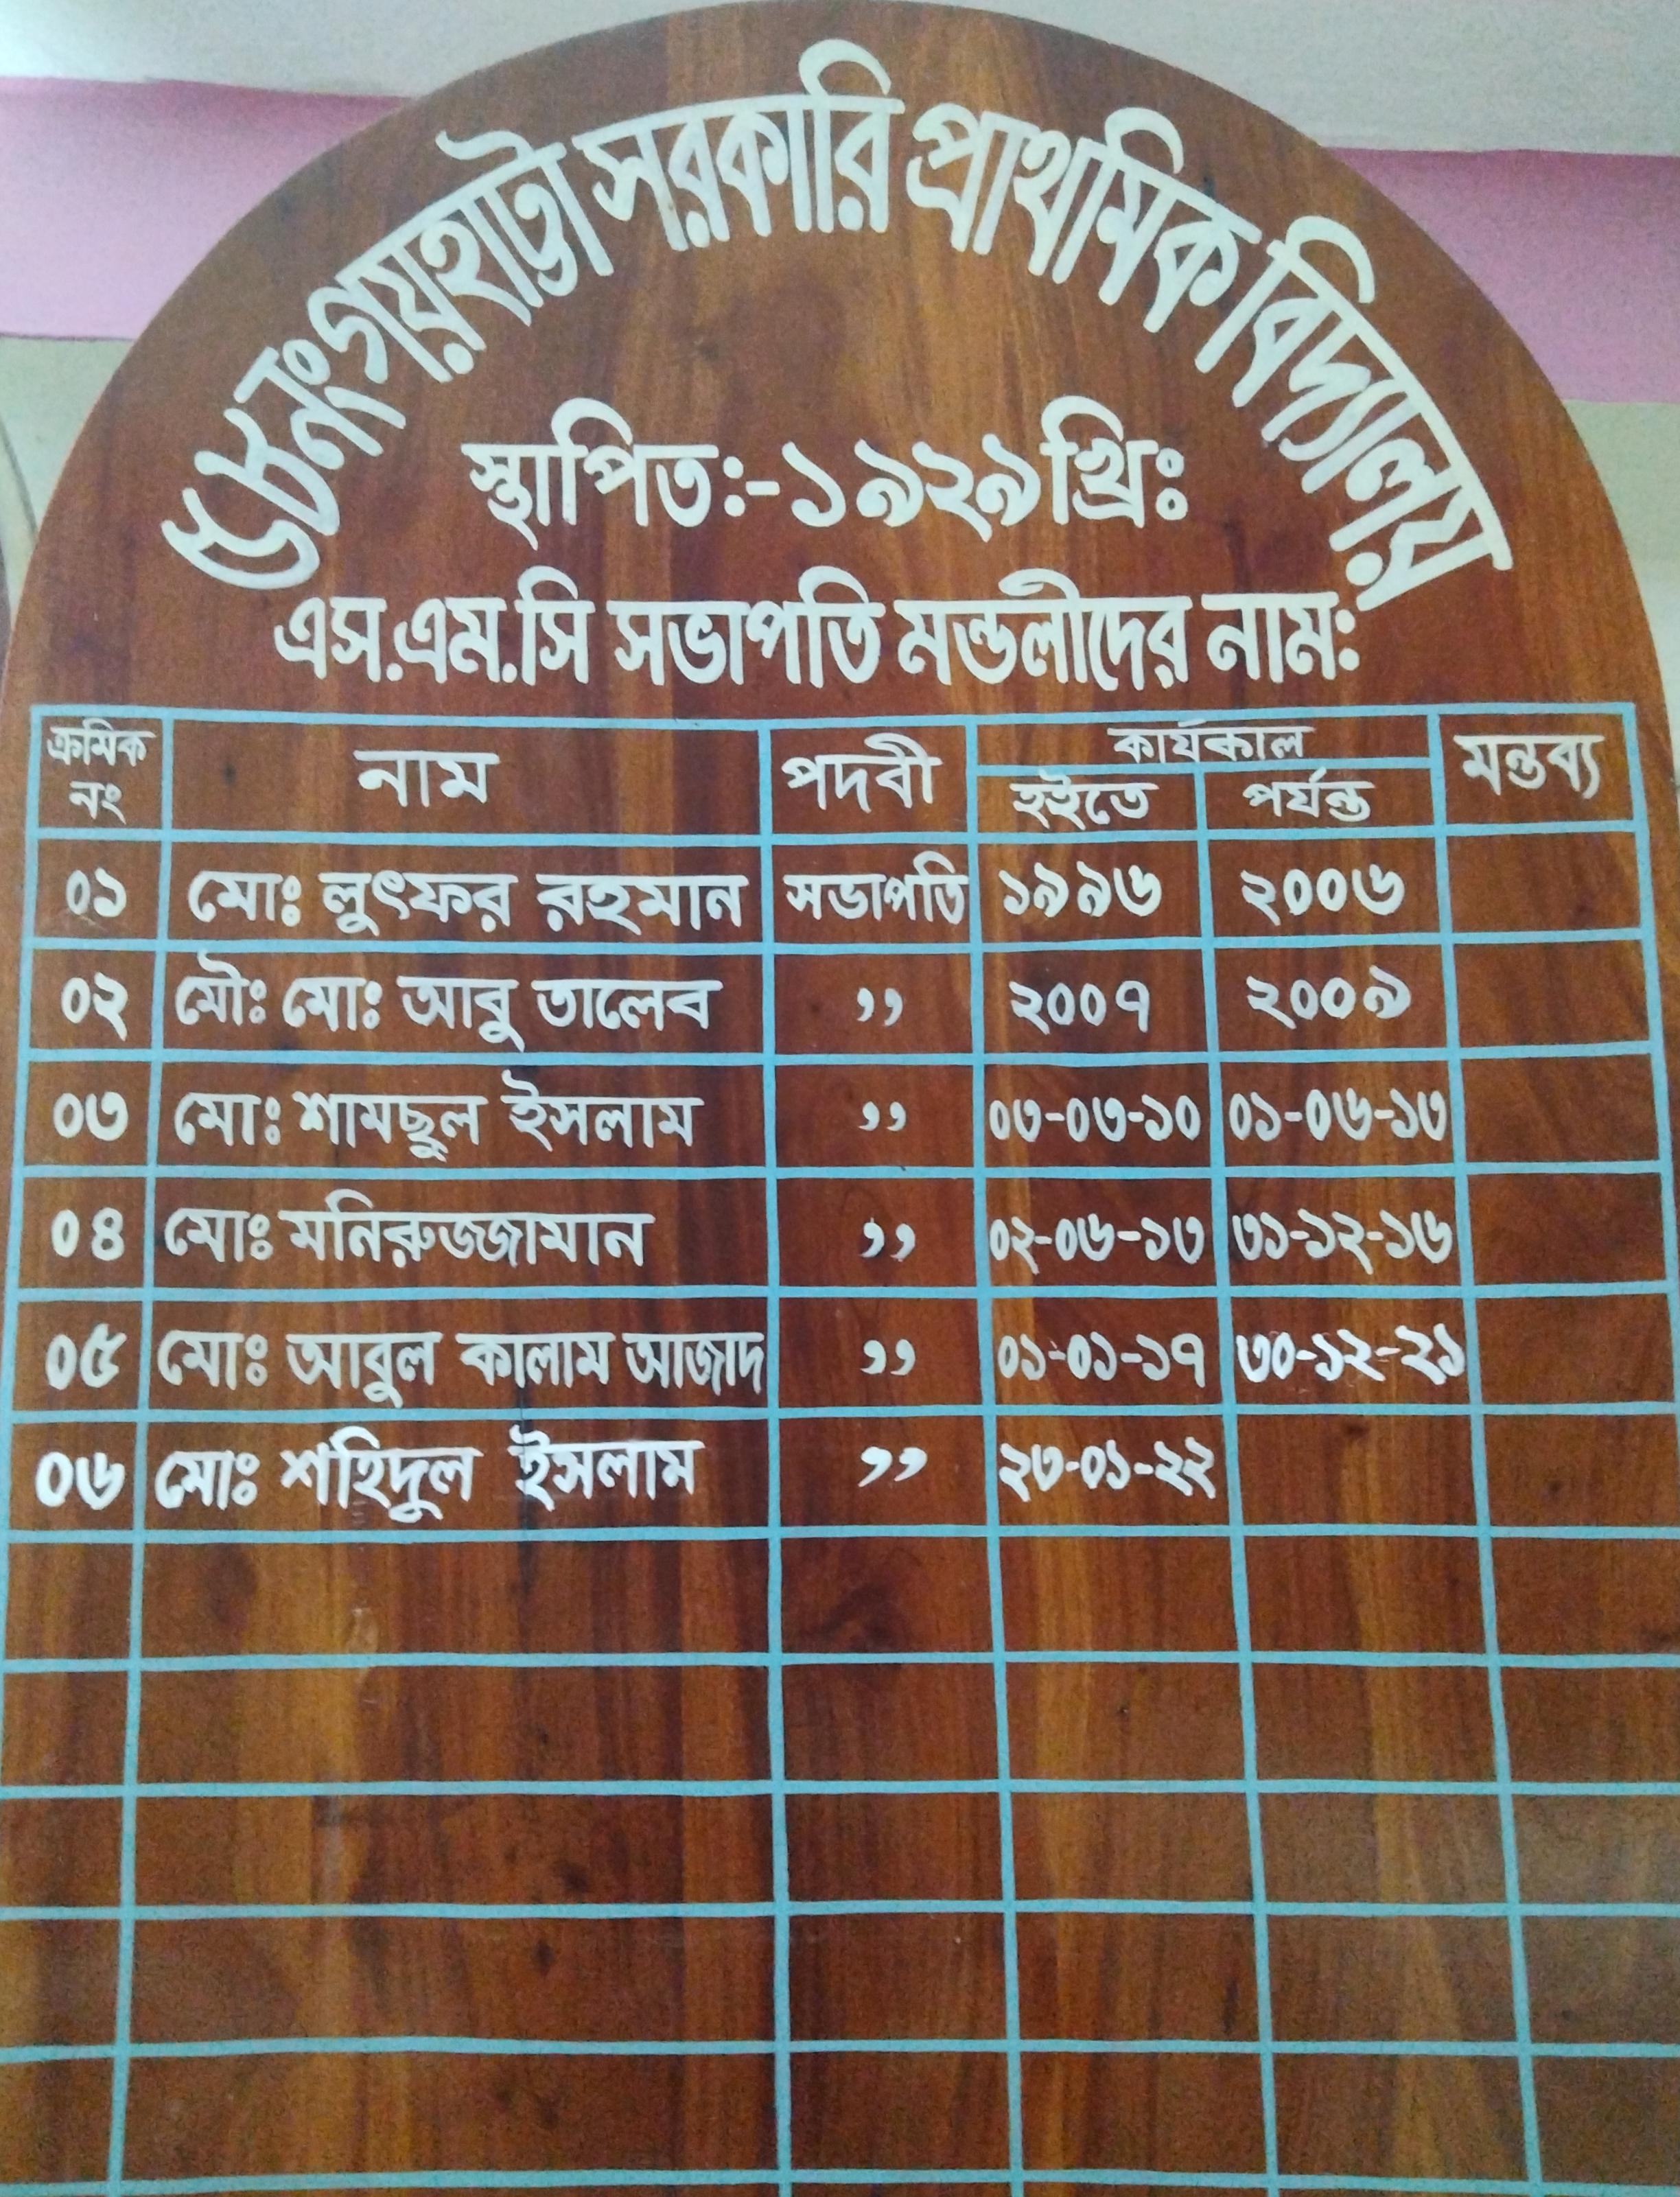 ৬৮নং গয়হাট্টা সরকারি প্রাথমিক বিদ্যালয়
স্থাপিত:-১৯২৯খ্রিঃ
এস.এম.সি সভাপতি মন্ডলীদের নাম:
ক্রমিক নং নাম পদবী কার্যকাল মন্তব্য
হইতে পর্যন্ত
০১ মোঃ লুৎফর রহমান সভাপতি ১৯৯৬ ২০০৬
০২ মৌঃ মোঃ আবু তালেব ,, ২০০৭ ২০০৯
০৩ মোঃ শামছুল ইসলাম ,, ০৩-০৩-১০ ০১-০৬-১৩
০৪ মোঃ মনিরুজ্জামান ,, ০২-০৬-১৩ ৩১-১২-১৬
০৫ মোঃ আবুল কালাম আজাদ ,, ০১-০১-১৭ ৩০-১২-২১
০৬ মোঃ শহিদুল ইসলাম ,, ২৩-০১-২২